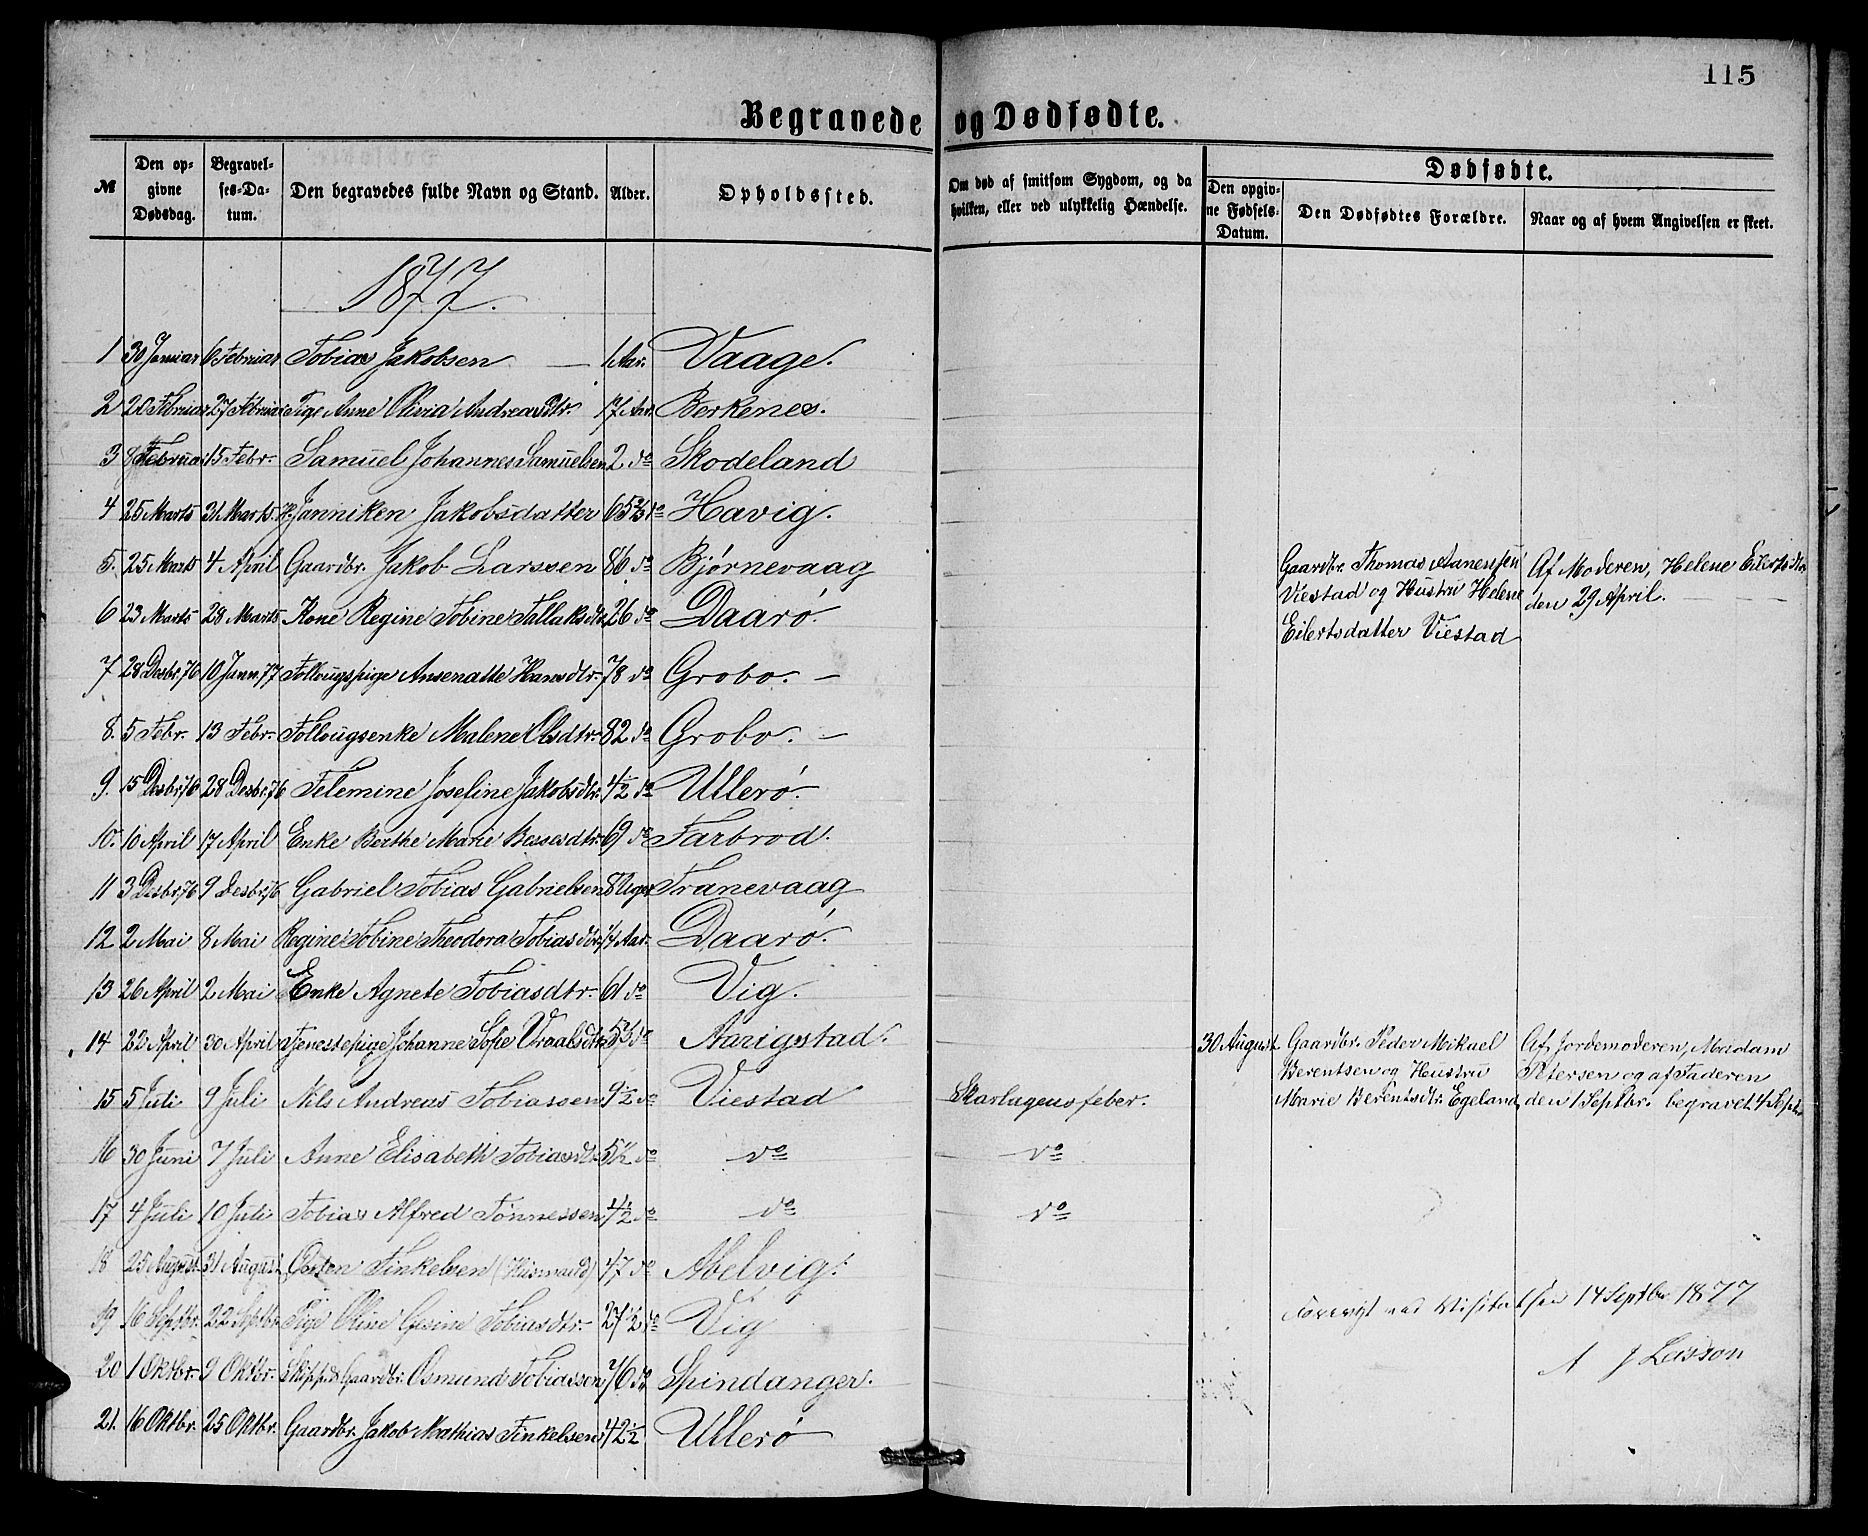 115
Begravede og Dødfødte.
№ Den opgivne Dødsdag. Begravelses-Datum. Den begravedes fulde Navn og Stand. Alder. Opholdssted. Om død af smitsom Sygdom, og da hvilken, eller ved ulykkelig Hændelse. Dødfødte. Den opgivne Fødsels-Datum. Den Dødfødtes Forældre. Naar og af hvem Angivelsen er skeet.
1877.
1 30 Januar 6 Februar Tobias Jakobsen 1 Aar. Vaage.
2 20 Februar 27 Februar Pige Anne Olivia Andreasdtr. 17 Aar Berkenes.
3 8 Februar 15 Febr. Samuel Johannes Samuelsen 2 do Skodeland
4 25 Marts 31 Marts Janniken Jakobsdatter 65 do Havig.
5. 25 Marts 4 April Gaardbr. Jakob Larssen 86 do Bjørnevaag
Gaardbr. Thomas Aanenssen Viestad og Hustru Helene Eilertsdatter Viestad
Af Moderen, Helene Eilertsdtr den 29 April.
6 23 Marts 28 Marts Kone Regine Tobine Tallaksdtr. 26 do Daarø.
7 28 Desbr. 76 10 Jann. 77 Follougspige Ansenatte Hansdtr. 78 do Grobo.
8. 5 Febr. 13 Febr. Follougsenke Malene Olsdtr. 82 do Grobo.
9. 15 Desbr. 76 28 Desbr. 76 Telemine Josefine Jakobsdtr. 4½ do Ullerø.
10. 10 April 17 April Enke Berthe Marie Bessesdtr. 69 do Farbrod.
11 3 Desbr. 76 9 Desbr. 76 Gabriel Tobias Gabrielsen 8 Uger Tranevaag
12 2 Mai 8 Mai Regine Tobine Theodora Tobiasdtr. ¼ Aar. Daarø.
13 26 April 2 Mai Enke Agnete Tobiasdtr. 61 do Vig.
14 22 April 30 April Tjenestepige Johanne Sofie Vraalsdtr. do Aarigstad.
30 August Gaardbr. Peder Mikael Berentsen og Hustru Marie Berentsdtr. Egeland,
Af Jordemoderen, Madam Petersen og af Faderen den 1 Septbr. begravet 4 Septbr
15 5 Juli 9 Juli Nils Andreas Tobiassen 9½ do Viestad Skarlagensfeber.
16 30 Juni 7 Juli Anne Elisabeth Tobiasdtr. 5½ do do do
17 4 Juli 10 Juli Tobias Alfred Tønnessen 4½ do do do
18 25 August 31 August Osten Tinkelsen (Husmand) 47 do Abelvig.
19 16 Septbr. 22 Septbr. Pige Oline Gesine Tobiasdtr. 27½ do Vig
Forevist ved Visitatsen 14 Septbr 1877
A J Lasson
20 1 Oktbr. 9 Oktbr. Skipper Gaardbr. Osmund Tobiassen 76 do Spindanger.
21. 16 Oktbr. 25 Oktbr. Gaardbr. Jakob Mathias Tinkelsen 42½ Ullerø